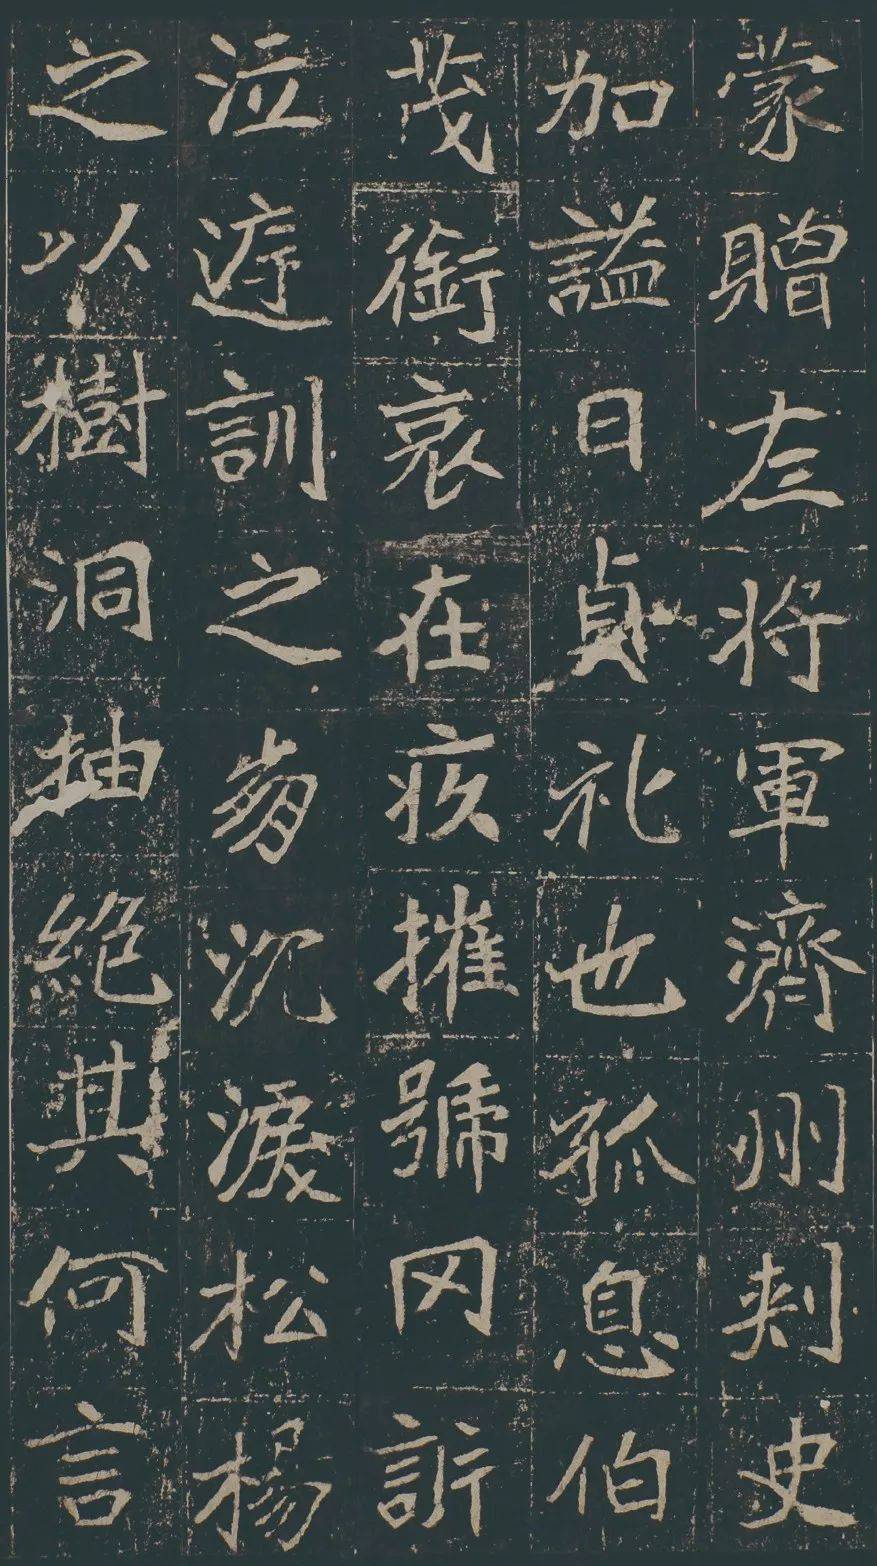 蒙贈左将軍濟州刾史
加謚曰貞礼也孤息伯
茂銜哀在疚摧號冈訴
泣遵訓之崩沉淚松楊
之以樹洞抽絶其何言